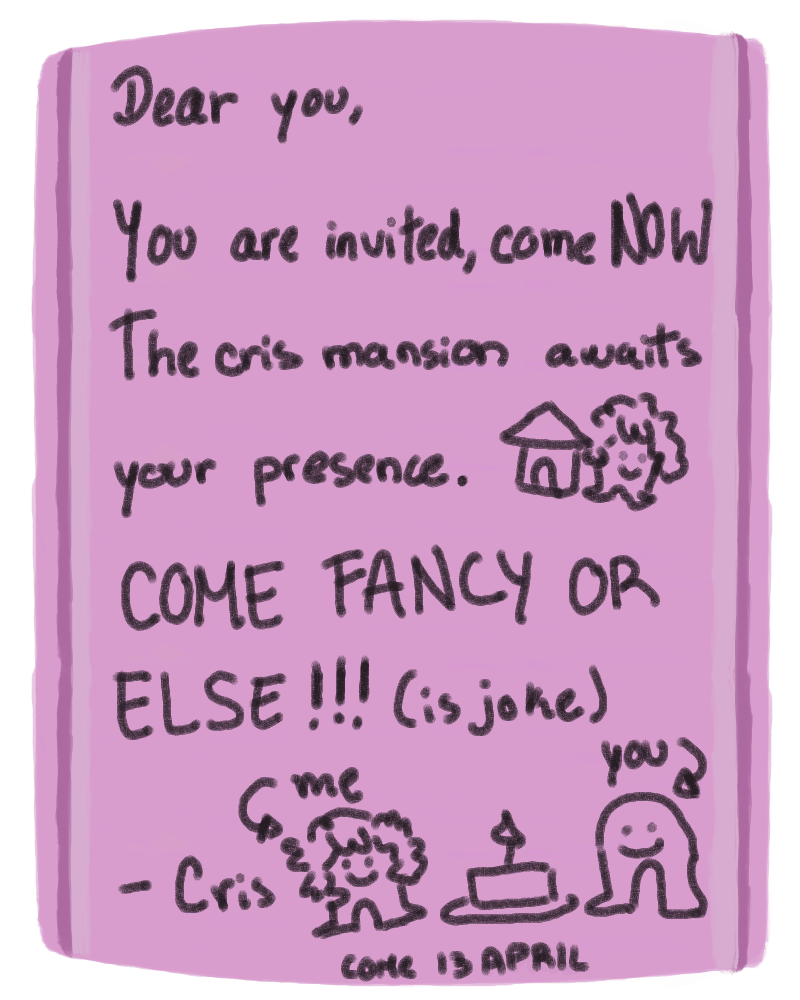 Dear you,
You are invited, come NOW
The cris mansion awaits
your presence.
COME FANCY OR
ELSE!!! (is joke)
you
me
- Cris
COME 13 APRIL